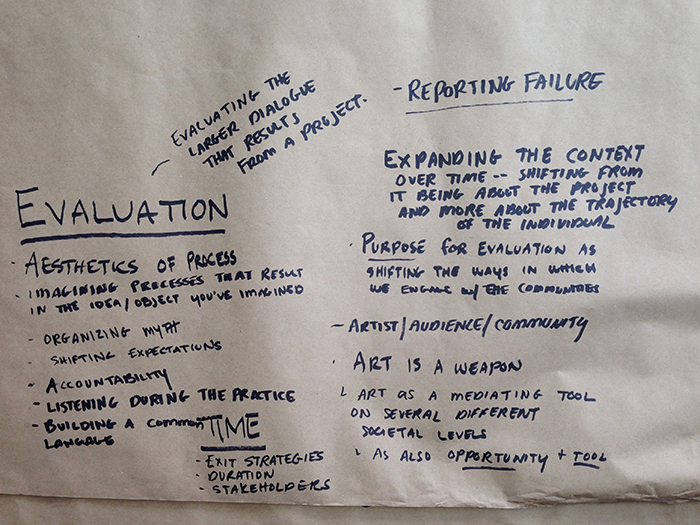 EVALUATING THE
LARGER DIALOGUE
THAT RESULTS
FROM A PROJECT.
EVALUATION
· AESTHETICS OF PROCESS
· IMAGINING PROCESSES THAT RESULT
IN THE IDEA/OBJECT YOU'VE IMAGINED
- ORGANIZING MYTH
- SHIFTING EXPECTATIONS
- ACCOUNTABILITY
- LISTENING DURING THE PRACTICE
- BUILDING A common
LANGAGE
TIME
- EXIT STRATEGIES
- DURATION
- STAKEHOLDERS
- REPORTING FAILURE
EXPANDING THE CONTEXT
OVER TIME -- SHIFTING FROM
IT BEING ABOUT THE PROJECT
AND MORE ABOUT THE TRAJECTORY
OF THE INDIVIDUAL
· PURPOSE FOR EVALUATION AS
SHIFTING THE WAYS IN WHICH
WE ENGAGE W/ THE COMMUNITIES
- ARTIST/AUDIENCE/COMMUNITY
· ART IS A WEAPON
L ART AS A MEDIATING TOOL
ON SEVERAL DIFFERENT
SOCIETAL LEVELS
L AS ALSO OPPORTUNITY + TOOL